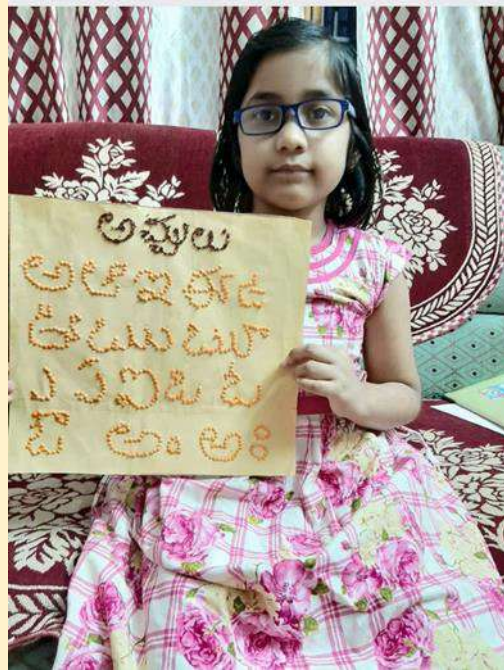 అచ్చులు
అ ఆ ఇ ఈ ఉ
ఊ ఋ ౠ
ఎ ఏ ఐ ఒ ఓ
ఔ అం అః